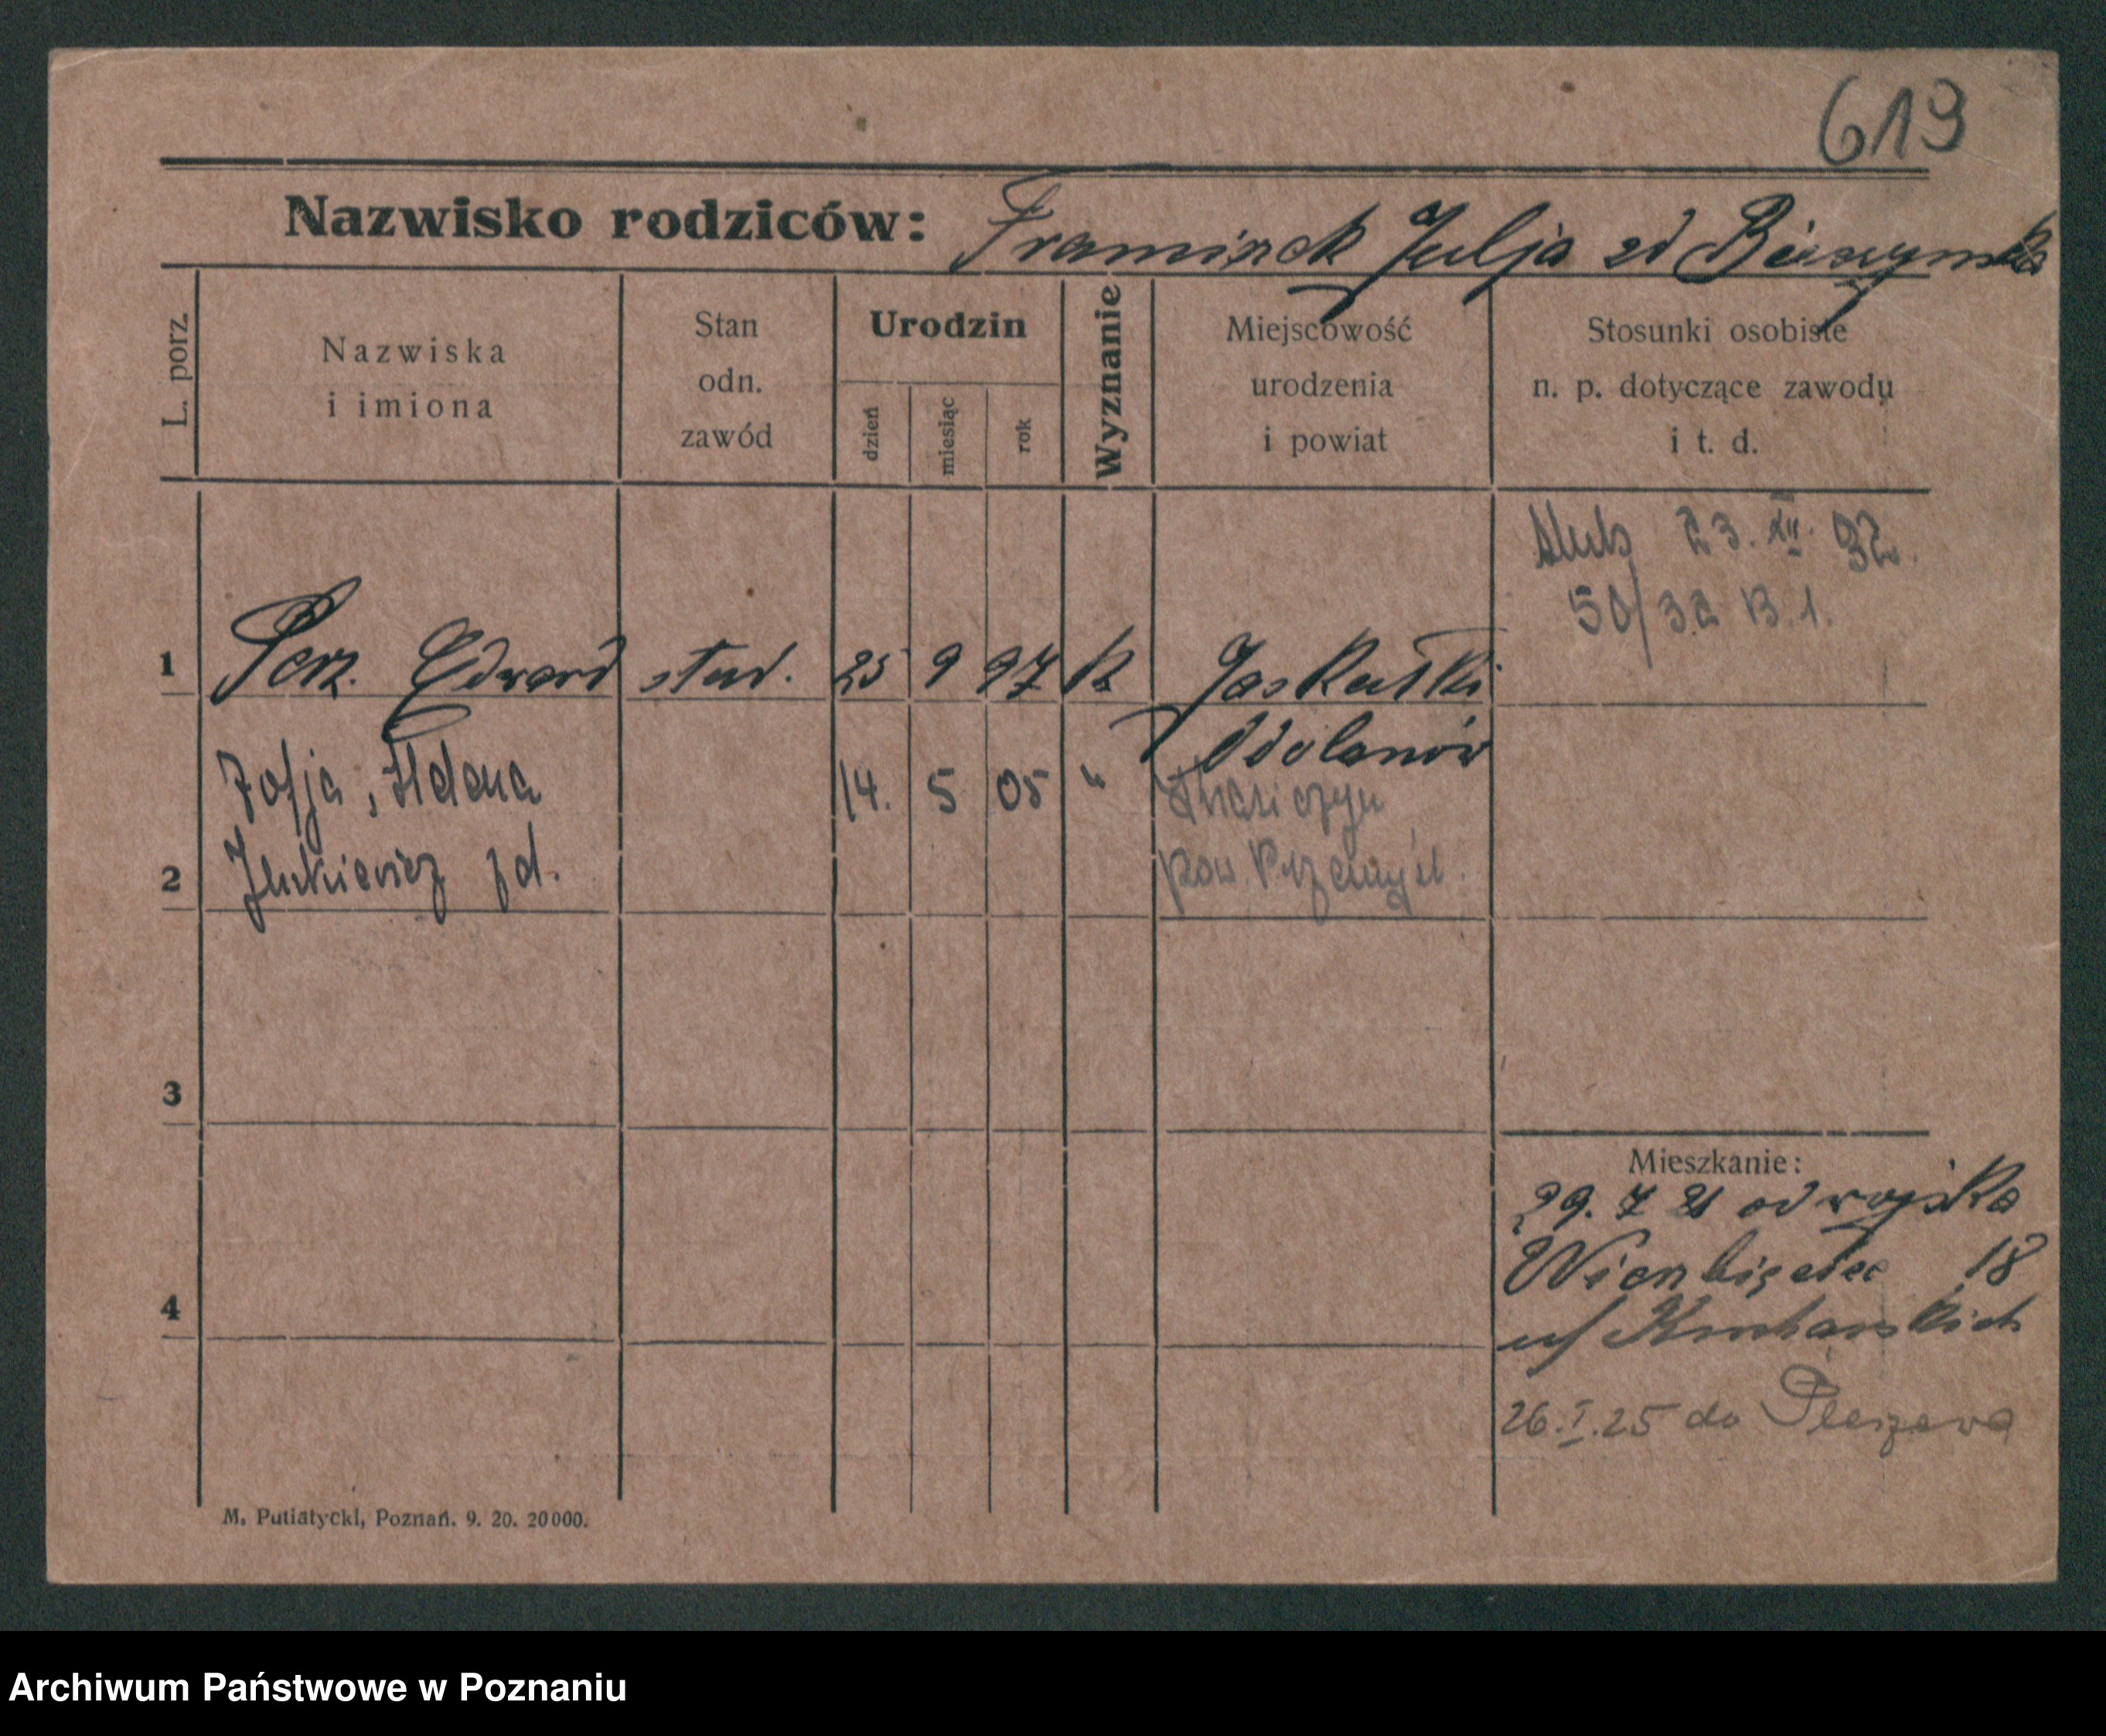 619
Nazwisko rodziców: Franciszek Julja zd
L. porz.
Nazwiska
i imiona
Stan
odn.
zawód
Urodzin
dzień
miesiąc
rok
Wyznanie
Miejscowość
urodzenia
i powiat
Stosunki osobiste
n. p. dotyczące zawodu
i t. d.
ślub 23. XII. 32.
50/32 B.1.
1 Perz. Edward stud. 25 9 97 k Jaskułki
Odolanów
Zofja, Helena 14. 5 05 "
2 zd. pow. Przemyśl.
3
Mieszkanie:
29. 7 21 od wojska
Wierzbięcice 18
4 u/ Kucharskich
26.I.25 do Pleszewa
M. Putiatycki, Poznań. 9. 20. 20000.
Archiwum Państwowe w Poznaniu